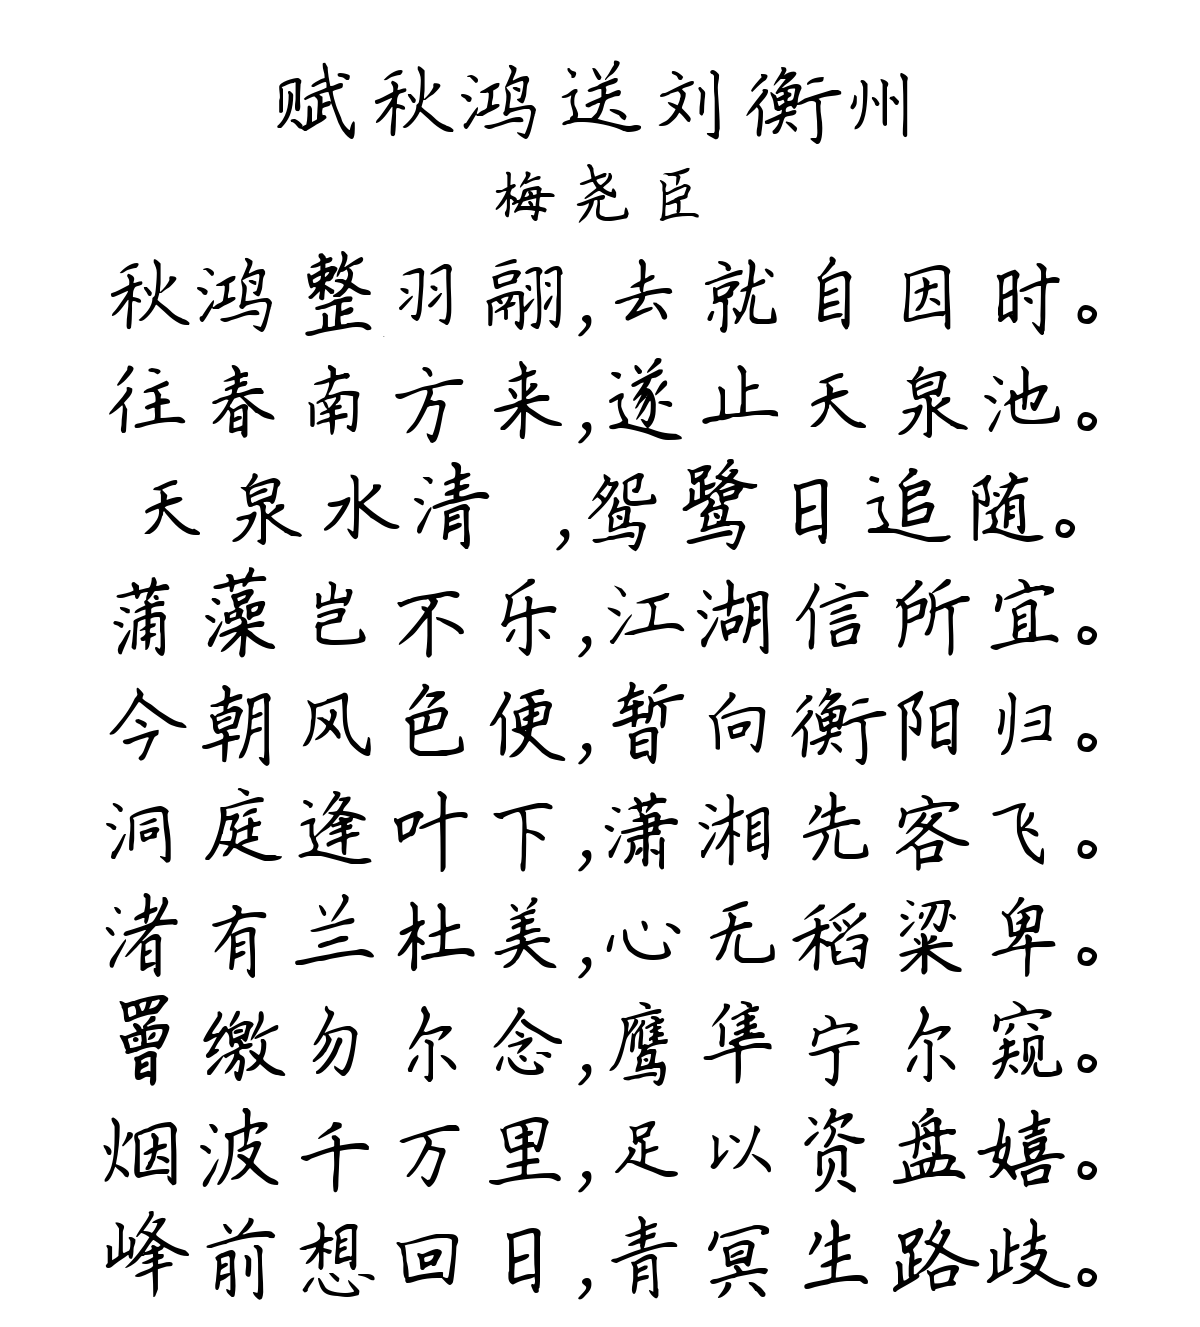 赋秋鸿送刘衡州
梅尧臣
秋鸿整羽翮,去就自因时。
往春南方来,遂止天泉池。
天泉水清 ,鸳鹭日追随。
蒲藻岂不乐,江湖信所宜。
今朝风色便,暂向衡阳归。
洞庭逢叶下,潇湘先客飞。
渚有兰杜美,心无稻粱卑。
罾缴勿尔念,鹰隼宁尔窥。
烟波千万里,足以资盘嬉。
峰前想回日,青冥生路歧。